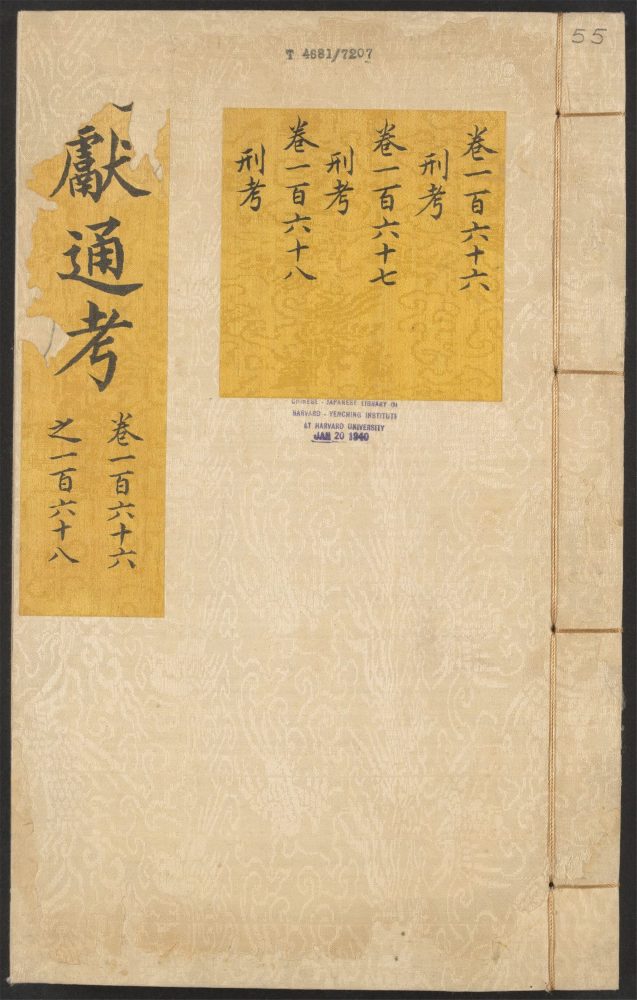 T 4681/7207
55
卷一百六十六
刑考
卷一百六十七
刑考
卷一百六十八
刑考
獻通考
卷一百六十六
之一百六十八
CHINESE - JAPANESE LIBRARY OF
HARVARD - YENCHING INSTITUTE
AT HARVARD UNIVERSITY
JAN 20 1940